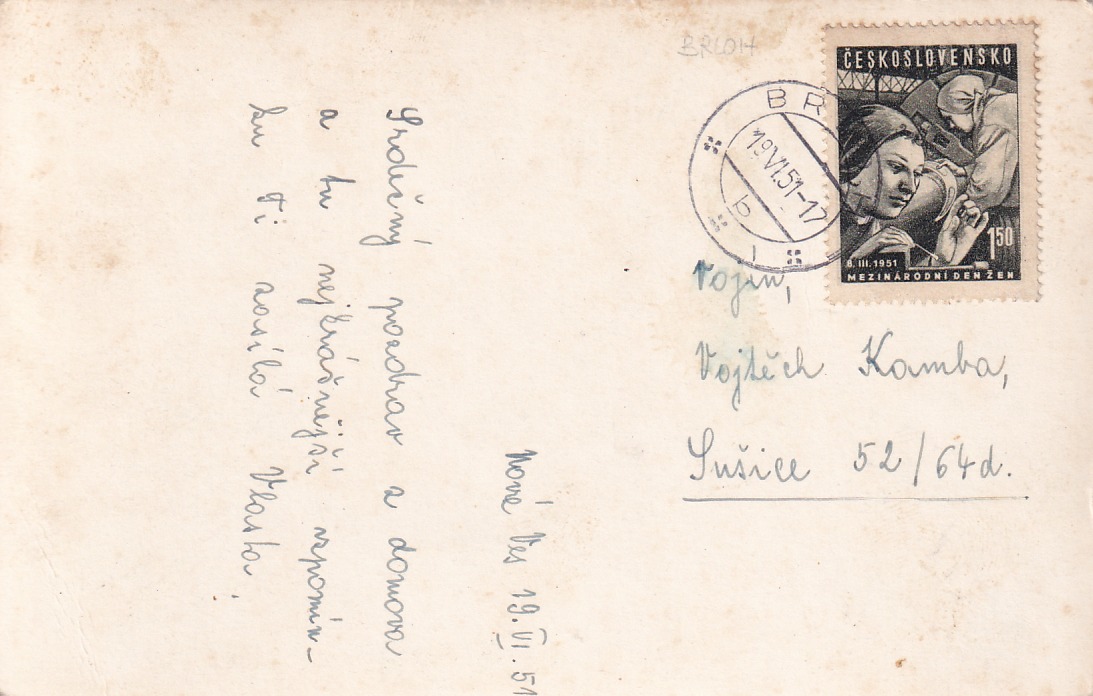 BRLOH
ČESKOSLOVENSKO
1 50
8. III. 1951
MEZINÁRODNÍ DEN ŽEN
BR
19.VI.51-17
b
Vojín,
Vojtěch Kamba,
Sušice 52/64d.
Nová Ves 19.VI.51
Srdečný pozdrav z domova
a tu nejkrásnější vzpomín-
ku Ti zasílá Vlasta.